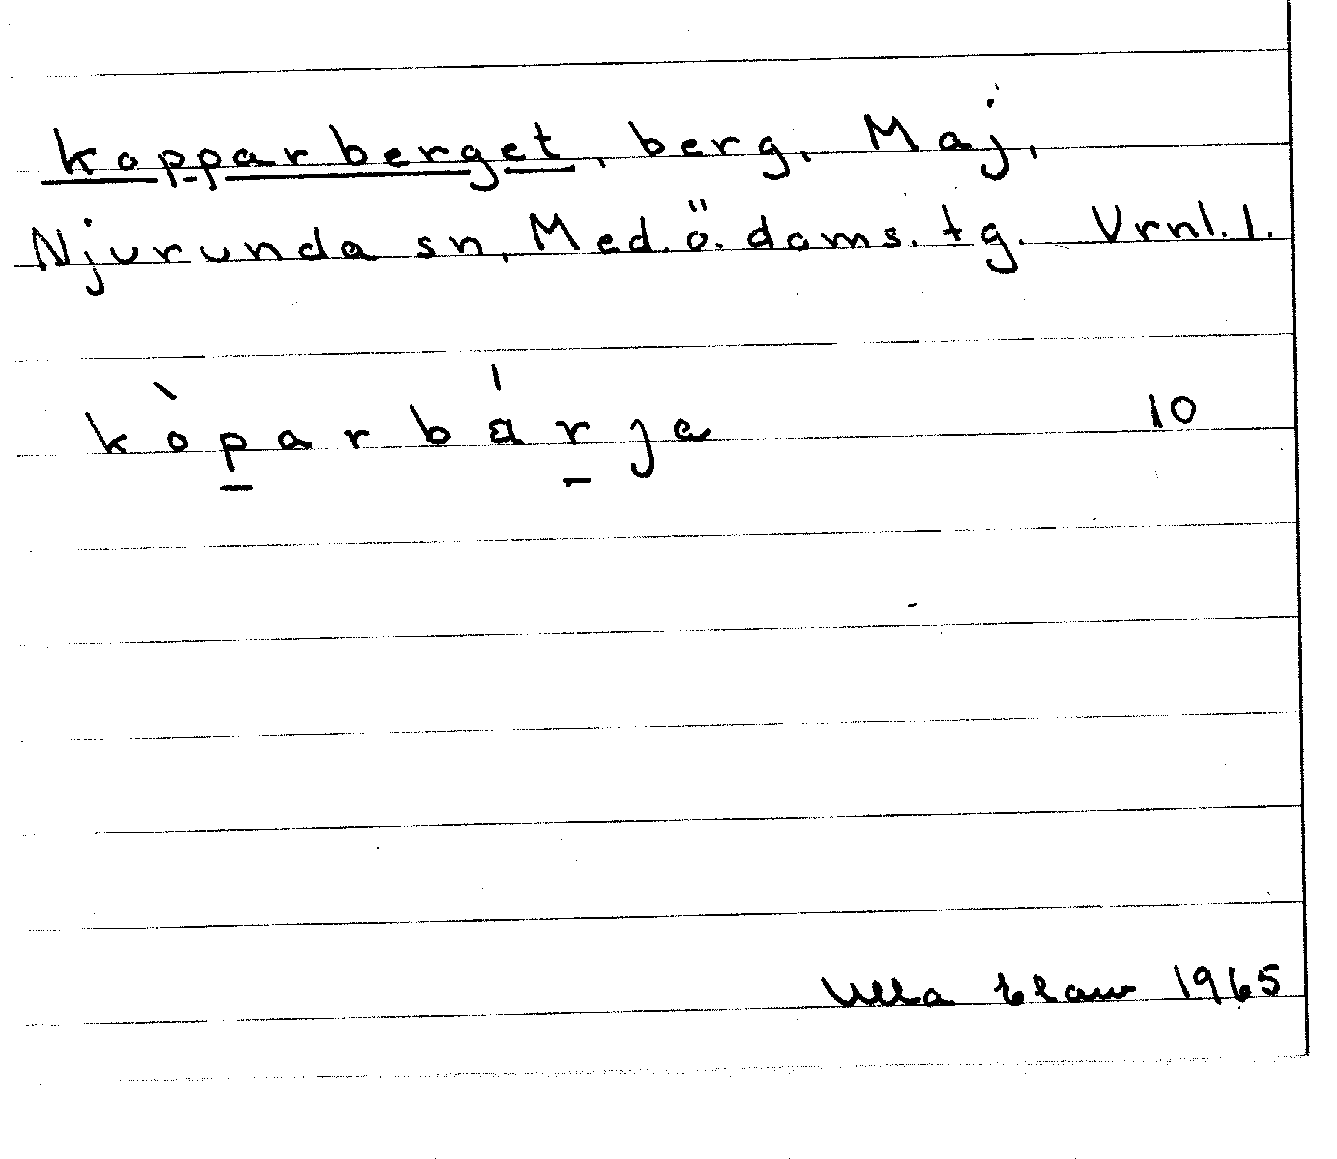 Kopparberget, berg, Maj,
Njurunda sn, Med. ö. doms. tg. Vrnl. l.
kòp̲arbár̲ja 10
Ulla 1965